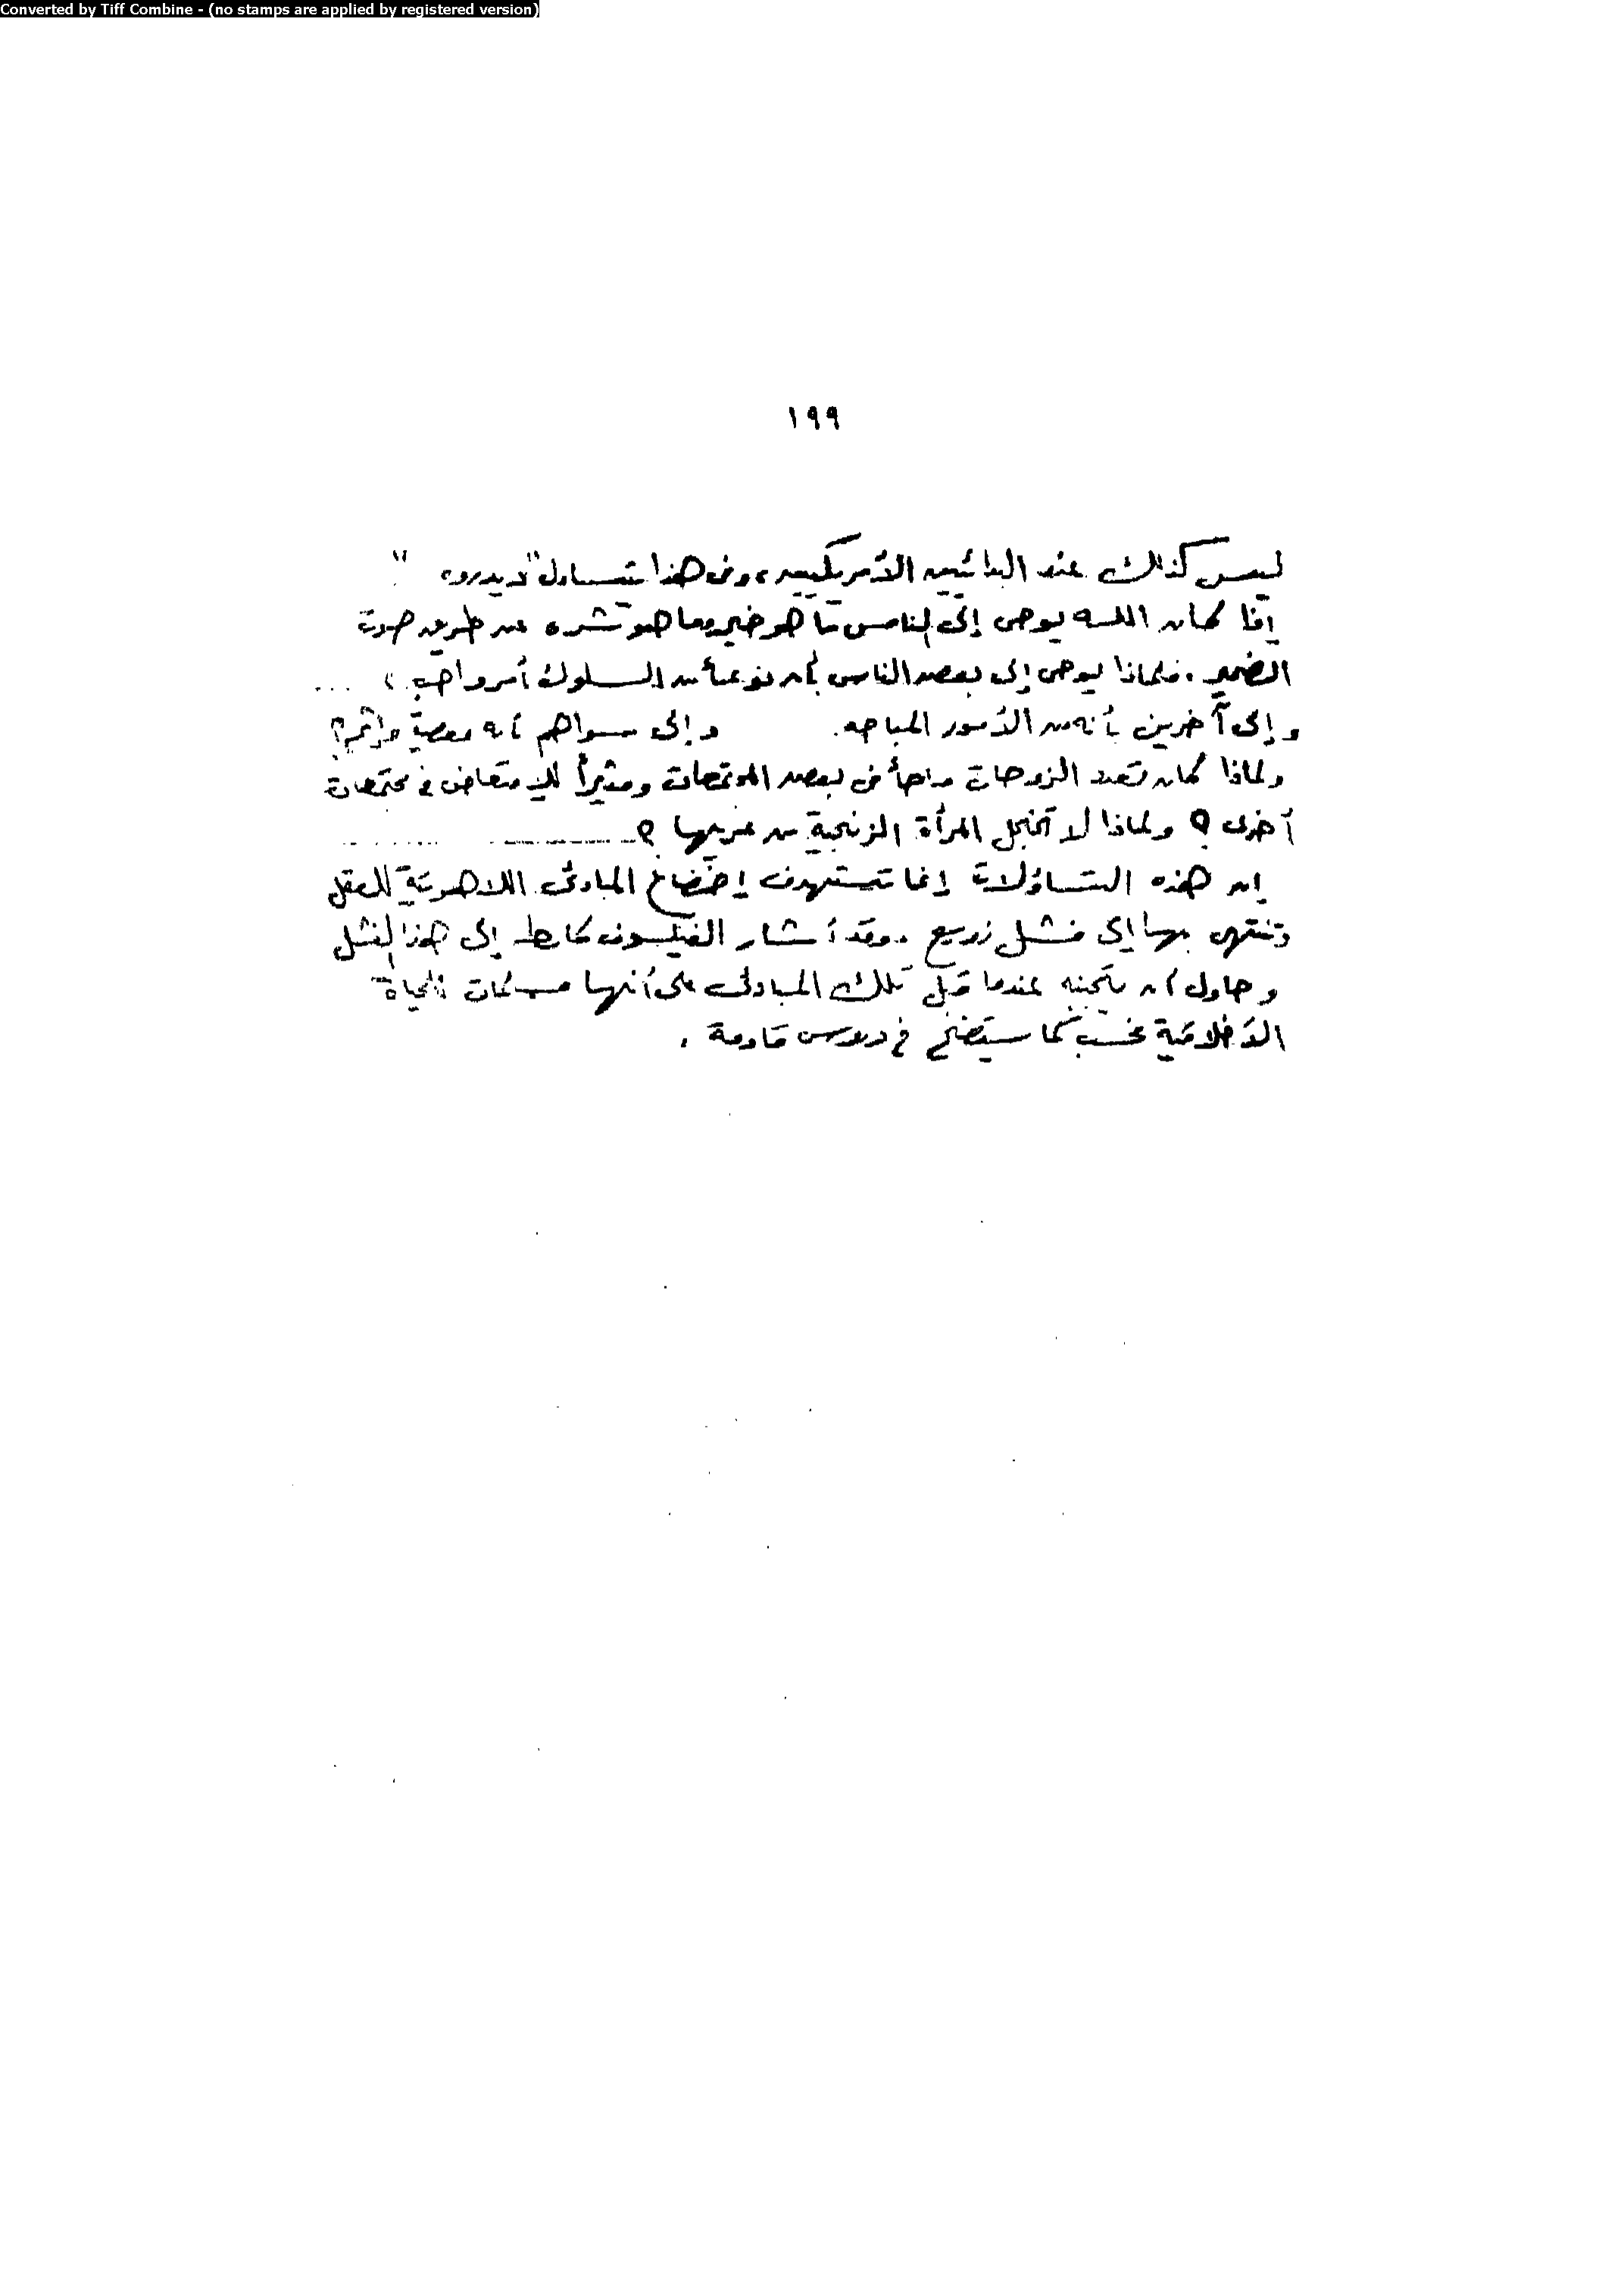 Converted by Tiff Combine - (no stamps are applied by registered version)
١٩٩
ليس كذلك عند البدائيين الأمريكيين، وفى هذا يتساءل "ديدرو"
إذا كان الله يوحى إلى الناس ما هو خير وما هو شر عن طريق صوت
الضمير . فلماذا يوحى إلى بعض الناس أن نوعاً من السلوك أمر واجب ، ...
وإلى آخرين بأنه من الأمور المباحه. وإلى سواهم أنه معصية وإثم؟
ولماذا كان تعدد الزوجات مباحاً فى بعض المجتمعات ومثيراً للإمتعاض فى مجتمعات
أخرى ؟ ولماذا لا تخجل المرأة الزنجية من عريها ؟
إن هذه التساؤلات إنما تستهدف إخضاع المبادئ اللاهوتية للعقل
وتنتهى بها إلى فشل ذريع .. وقد أشار الفيلسوف كانط إلى هذا الفشل
وحاول أن يتجنبه عندما قبل تلك المبادئ على أنها مسلمات للحياة
الأخلاقية فحسب كما سيتضح فى دروس قادمة .